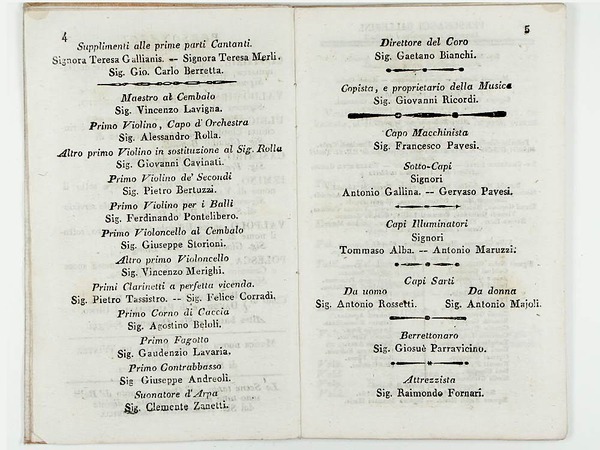 4
Supplimenti alle prime parti Cantanti.
Signora Teresa Gallianis. -- Signora Teresa Merli.
Sig. Gio. Carlo Berretta.
Maestro al Cembalo
Sig. Vincenzo Lavigna.
Primo Violino, Capo d'Orchestra
Sig. Alessandro Rolla.
Altro primo Violino in sostituzione al Sig. Rolla
Sig. Giovanni Cavinati.
Primo Violino de' Secondi
Sig. Pietro Bertuzzi.
Primo Violino per i Balli
Sig. Ferdinando Pontelibero.
Primo Violoncello al Cembalo
Sig. Giuseppe Storioni.
Altro primo Violoncello
Sig. Vincenzo Merighi.
Primi Clarinetti a perfetta vicenda.
Sig. Pietro Tassistro. -- Sig. Felice Corradi.
Primo Corno di Caccia
Sig. Agostino Beloli.
Primo Fagotto
Sig. Gaudenzio Lavaria.
Primo Contrabbasso
Sig Giuseppe Andreoli.
Suonatore d'Arpa
Sig. Clemente Zanetti.
5
Direttore del Coro
Sig. Gaetano Bianchi.
Copista, e proprietario della Musica
Sig. Giovanni Ricordi.
Capo Macchinista
Sig. Francesco Pavesi.
Sotto-Capi
Signori
Antonio Gallina. -- Gervaso Pavesi.
Capi Illuminatori
Signori
Tommaso Alba. -- Antonio Maruzzi.
Capi Sarti
Da uomo Da donna
Sig. Antonio Rossetti. Sig. Antonio Majoli.
Berrettonaro
Sig. Giosuè Parravicino.
Attrezzista
Sig. Raimondo Fornari.